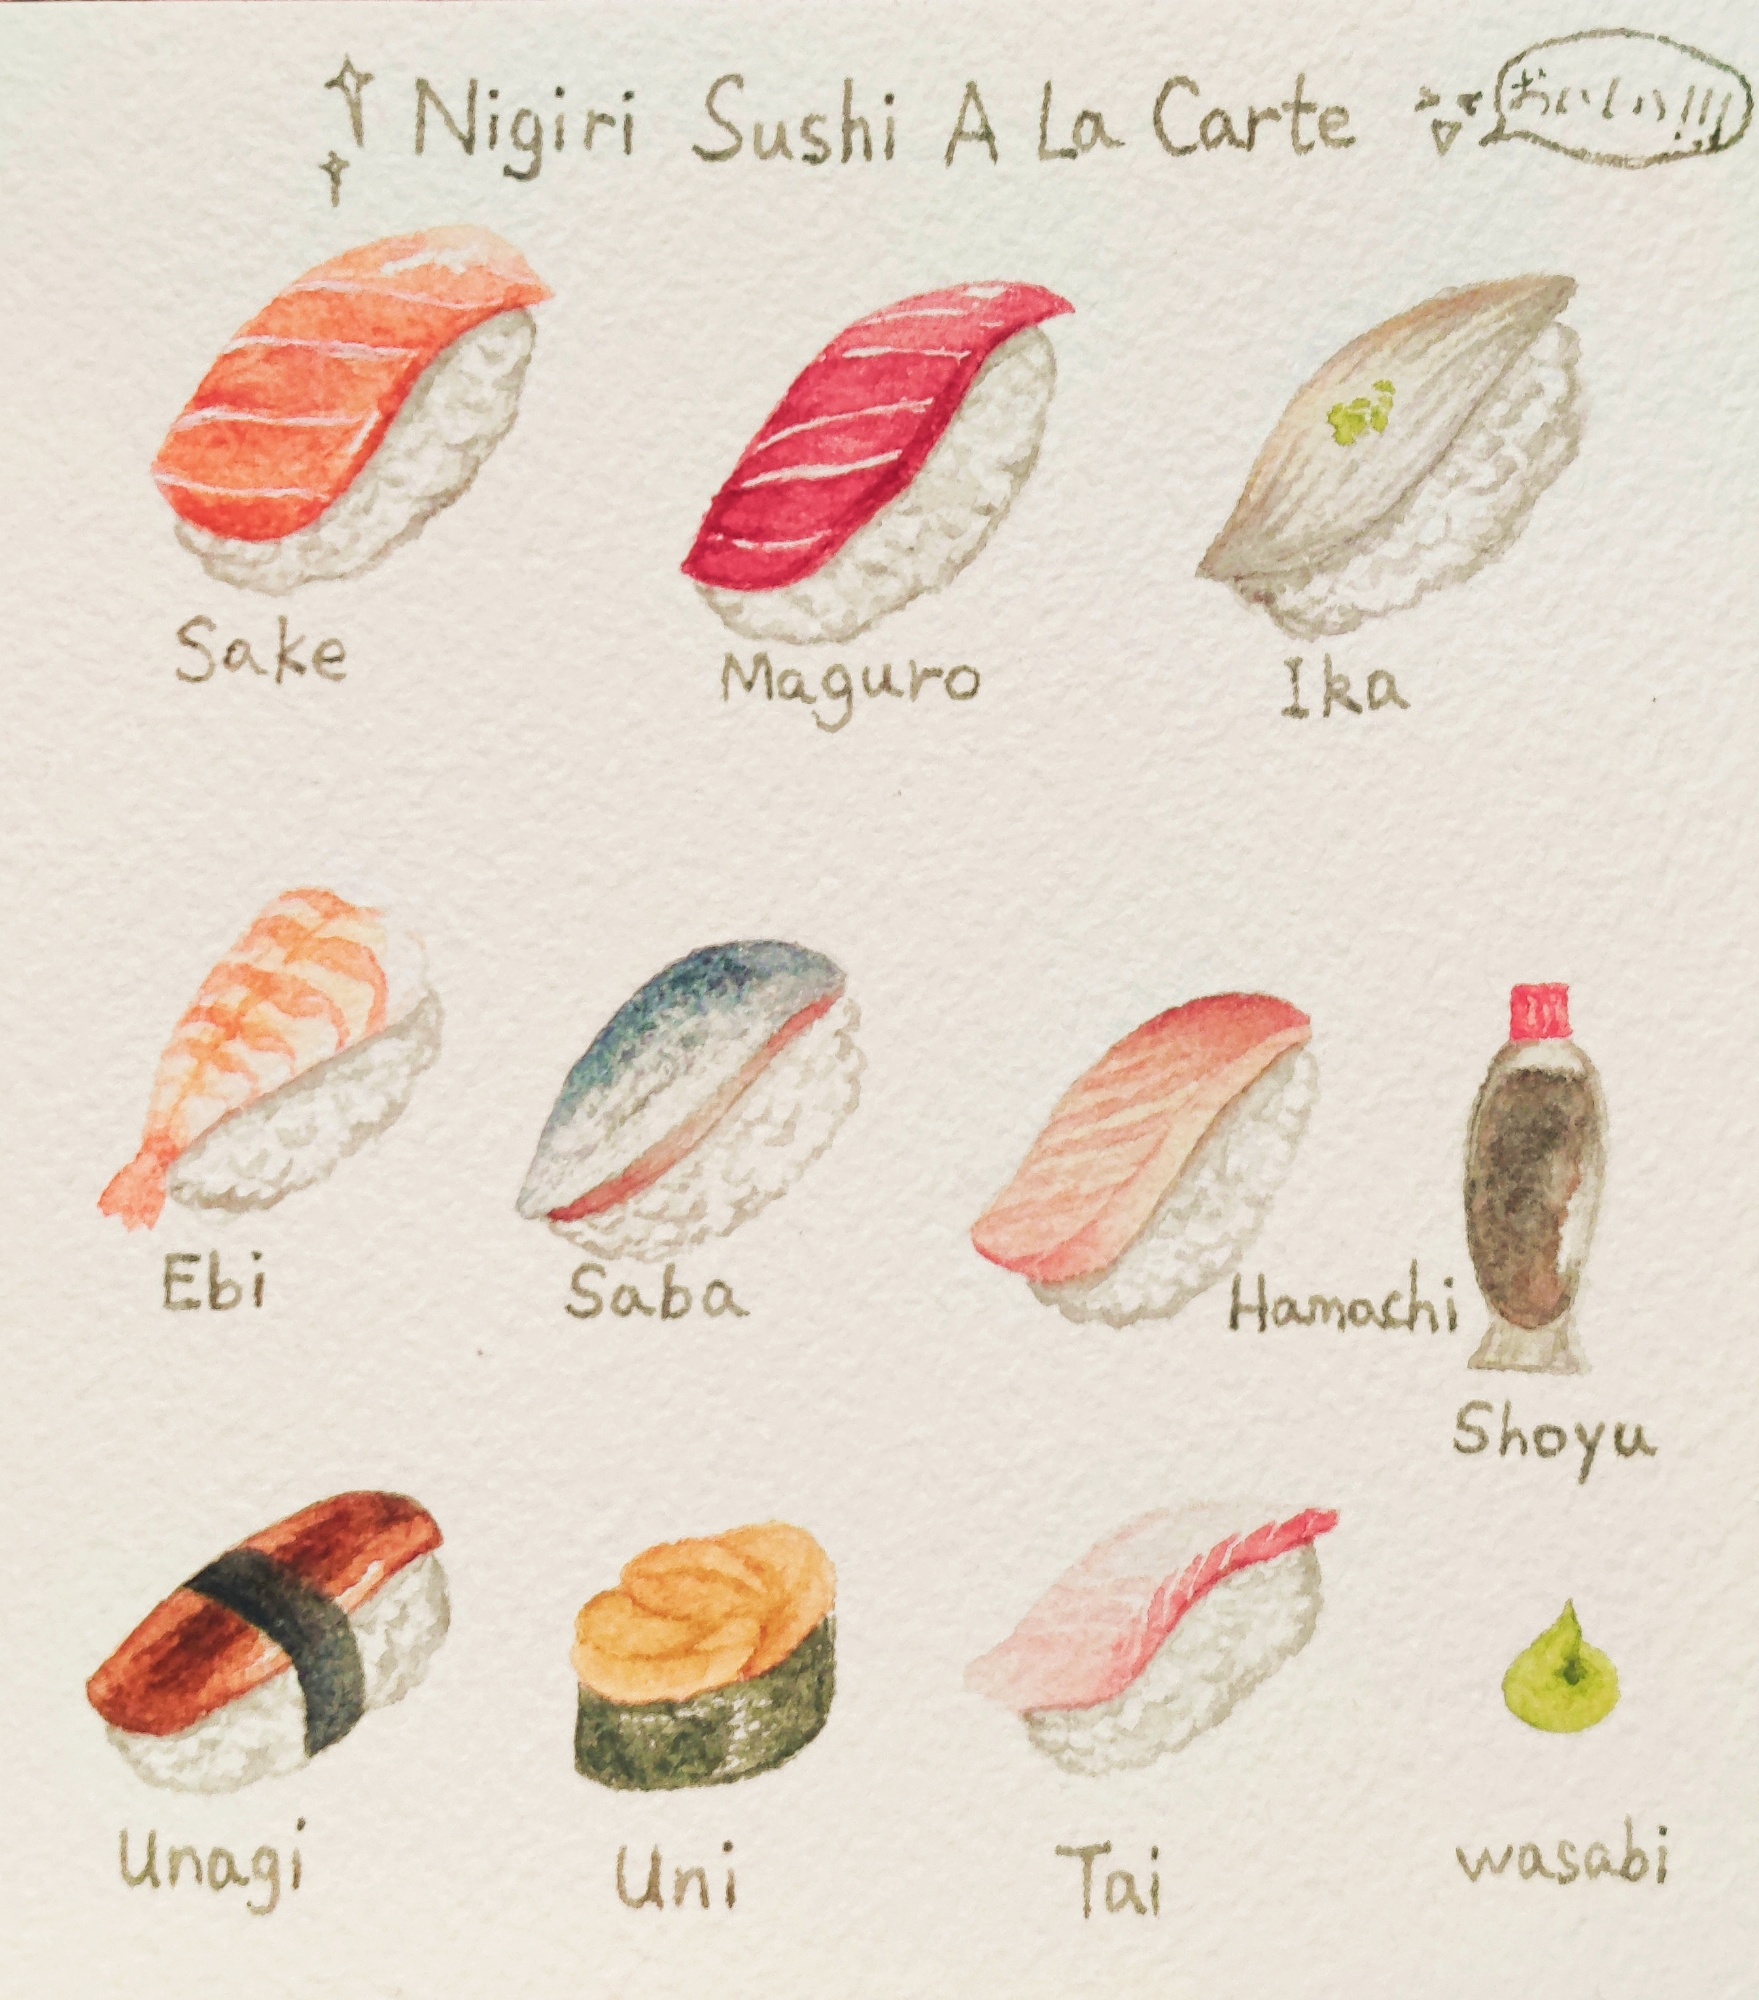 Nigiri Sushi A La Carte
おいしい!!!
Sake
Maguro
Ika
Ebi
Saba
Hamachi
Shoyu
Unagi
Uni
Tai
wasabi